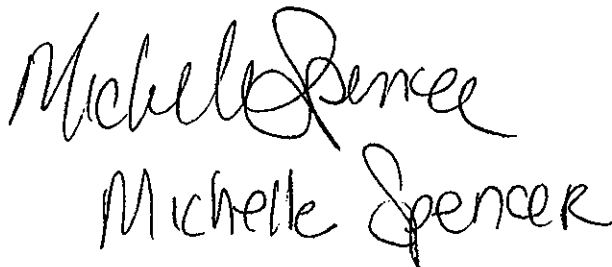 Michelle Spencer
Michelle Spencer